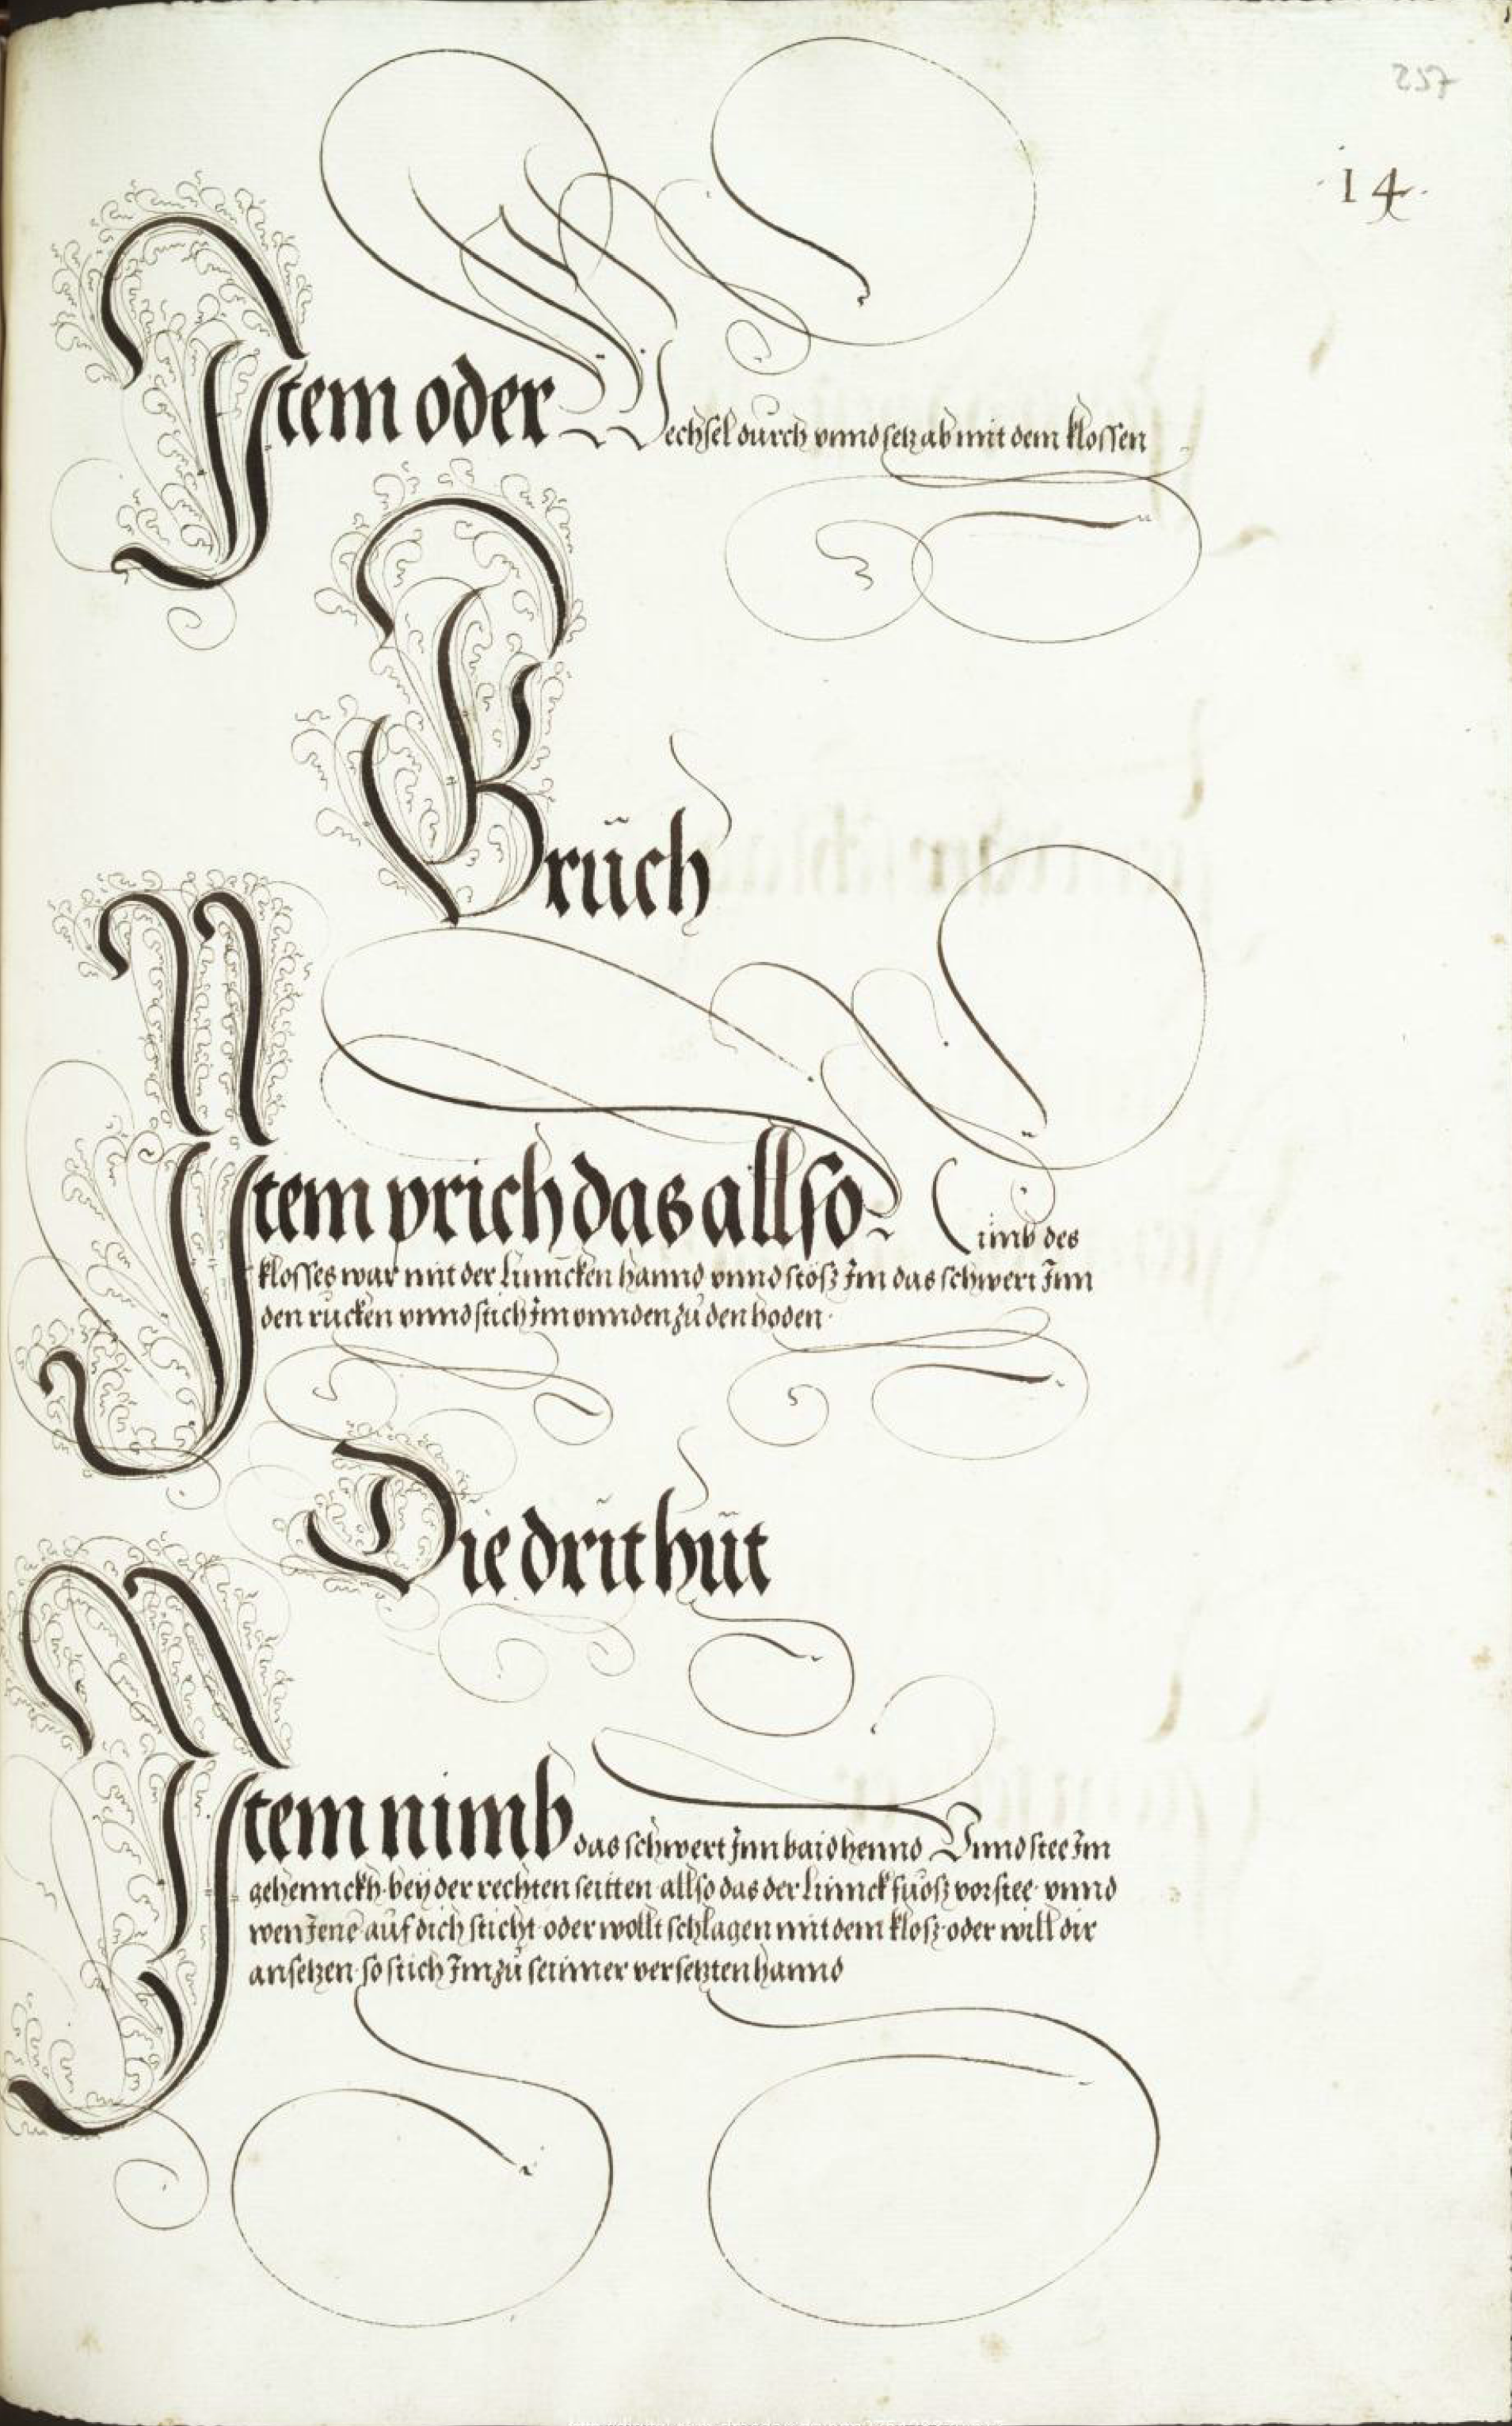 257
·14·
Item oder Wechsel durch vnnd setz ab mit dem klossen
Brüch
Item prich das allso Nimb des
klosses war mit der linncken hannd vnnd stosz Im das schwert Inn
den rucken vnnd stich Im vnnden zu den hoden·
Die drit hüt
Item nimb das schwert Inn baid hennd Vnnd stee Im
gehennckh· bey der rechten seitten allso das der linnck fuosz vorstee· vnnd
wen Jene auf dich sticht· oder wollt schlagen mit dem klosz· oder will dir
ansetzen· so stich Im zu seinner versetzten hannd